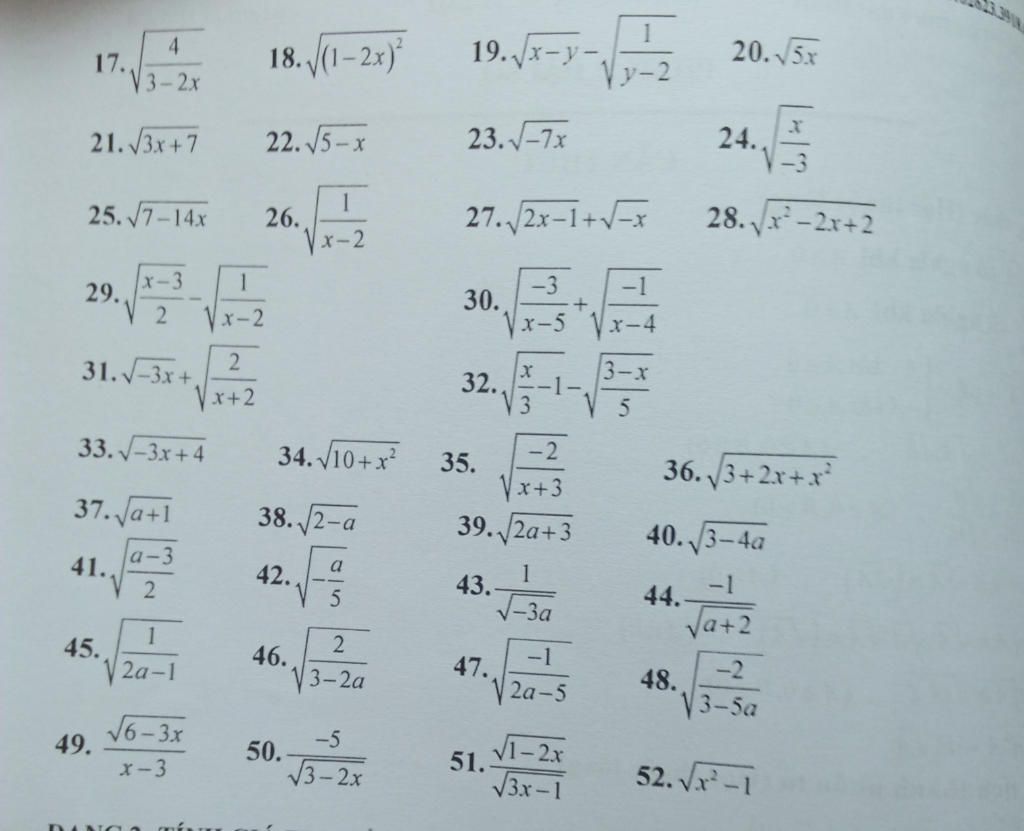 17. √(4/(3−2x)) 18. √((1−2x)²) 19. √(x−y) − √(1/(y−2)) 20. √(5x)
21. √(3x+7) 22. √(5−x) 23. √(−7x) 24. √(x/(−3))
25. √(7−14x) 26. √(1/(x−2)) 27. √(2x−1) + √(−x) 28. √(x²−2x+2)
29. √((x−3)/2) − √(1/(x−2)) 30. √((−3)/(x−5)) + √((−1)/(x−4))
31. √(−3x) + √(2/(x+2)) 32. √(x/3−1) − √((3−x)/5)
33. √(−3x+4) 34. √(10+x²) 35. √((−2)/(x+3)) 36. √(3+2x+x²)
37. √(a+1) 38. √(2−a) 39. √(2a+3) 40. √(3−4a)
41. √((a−3)/2) 42. √(−a/5) 43. 1/√(−3a) 44. (−1)/√(a+2)
45. √(1/(2a−1)) 46. √(2/(3−2a)) 47. √((−1)/(2a−5)) 48. √((−2)/(3−5a))
49. √(6−3x)/(x−3) 50. (−5)/√(3−2x) 51. √(1−2x)/√(3x−1) 52. √(x²−1)